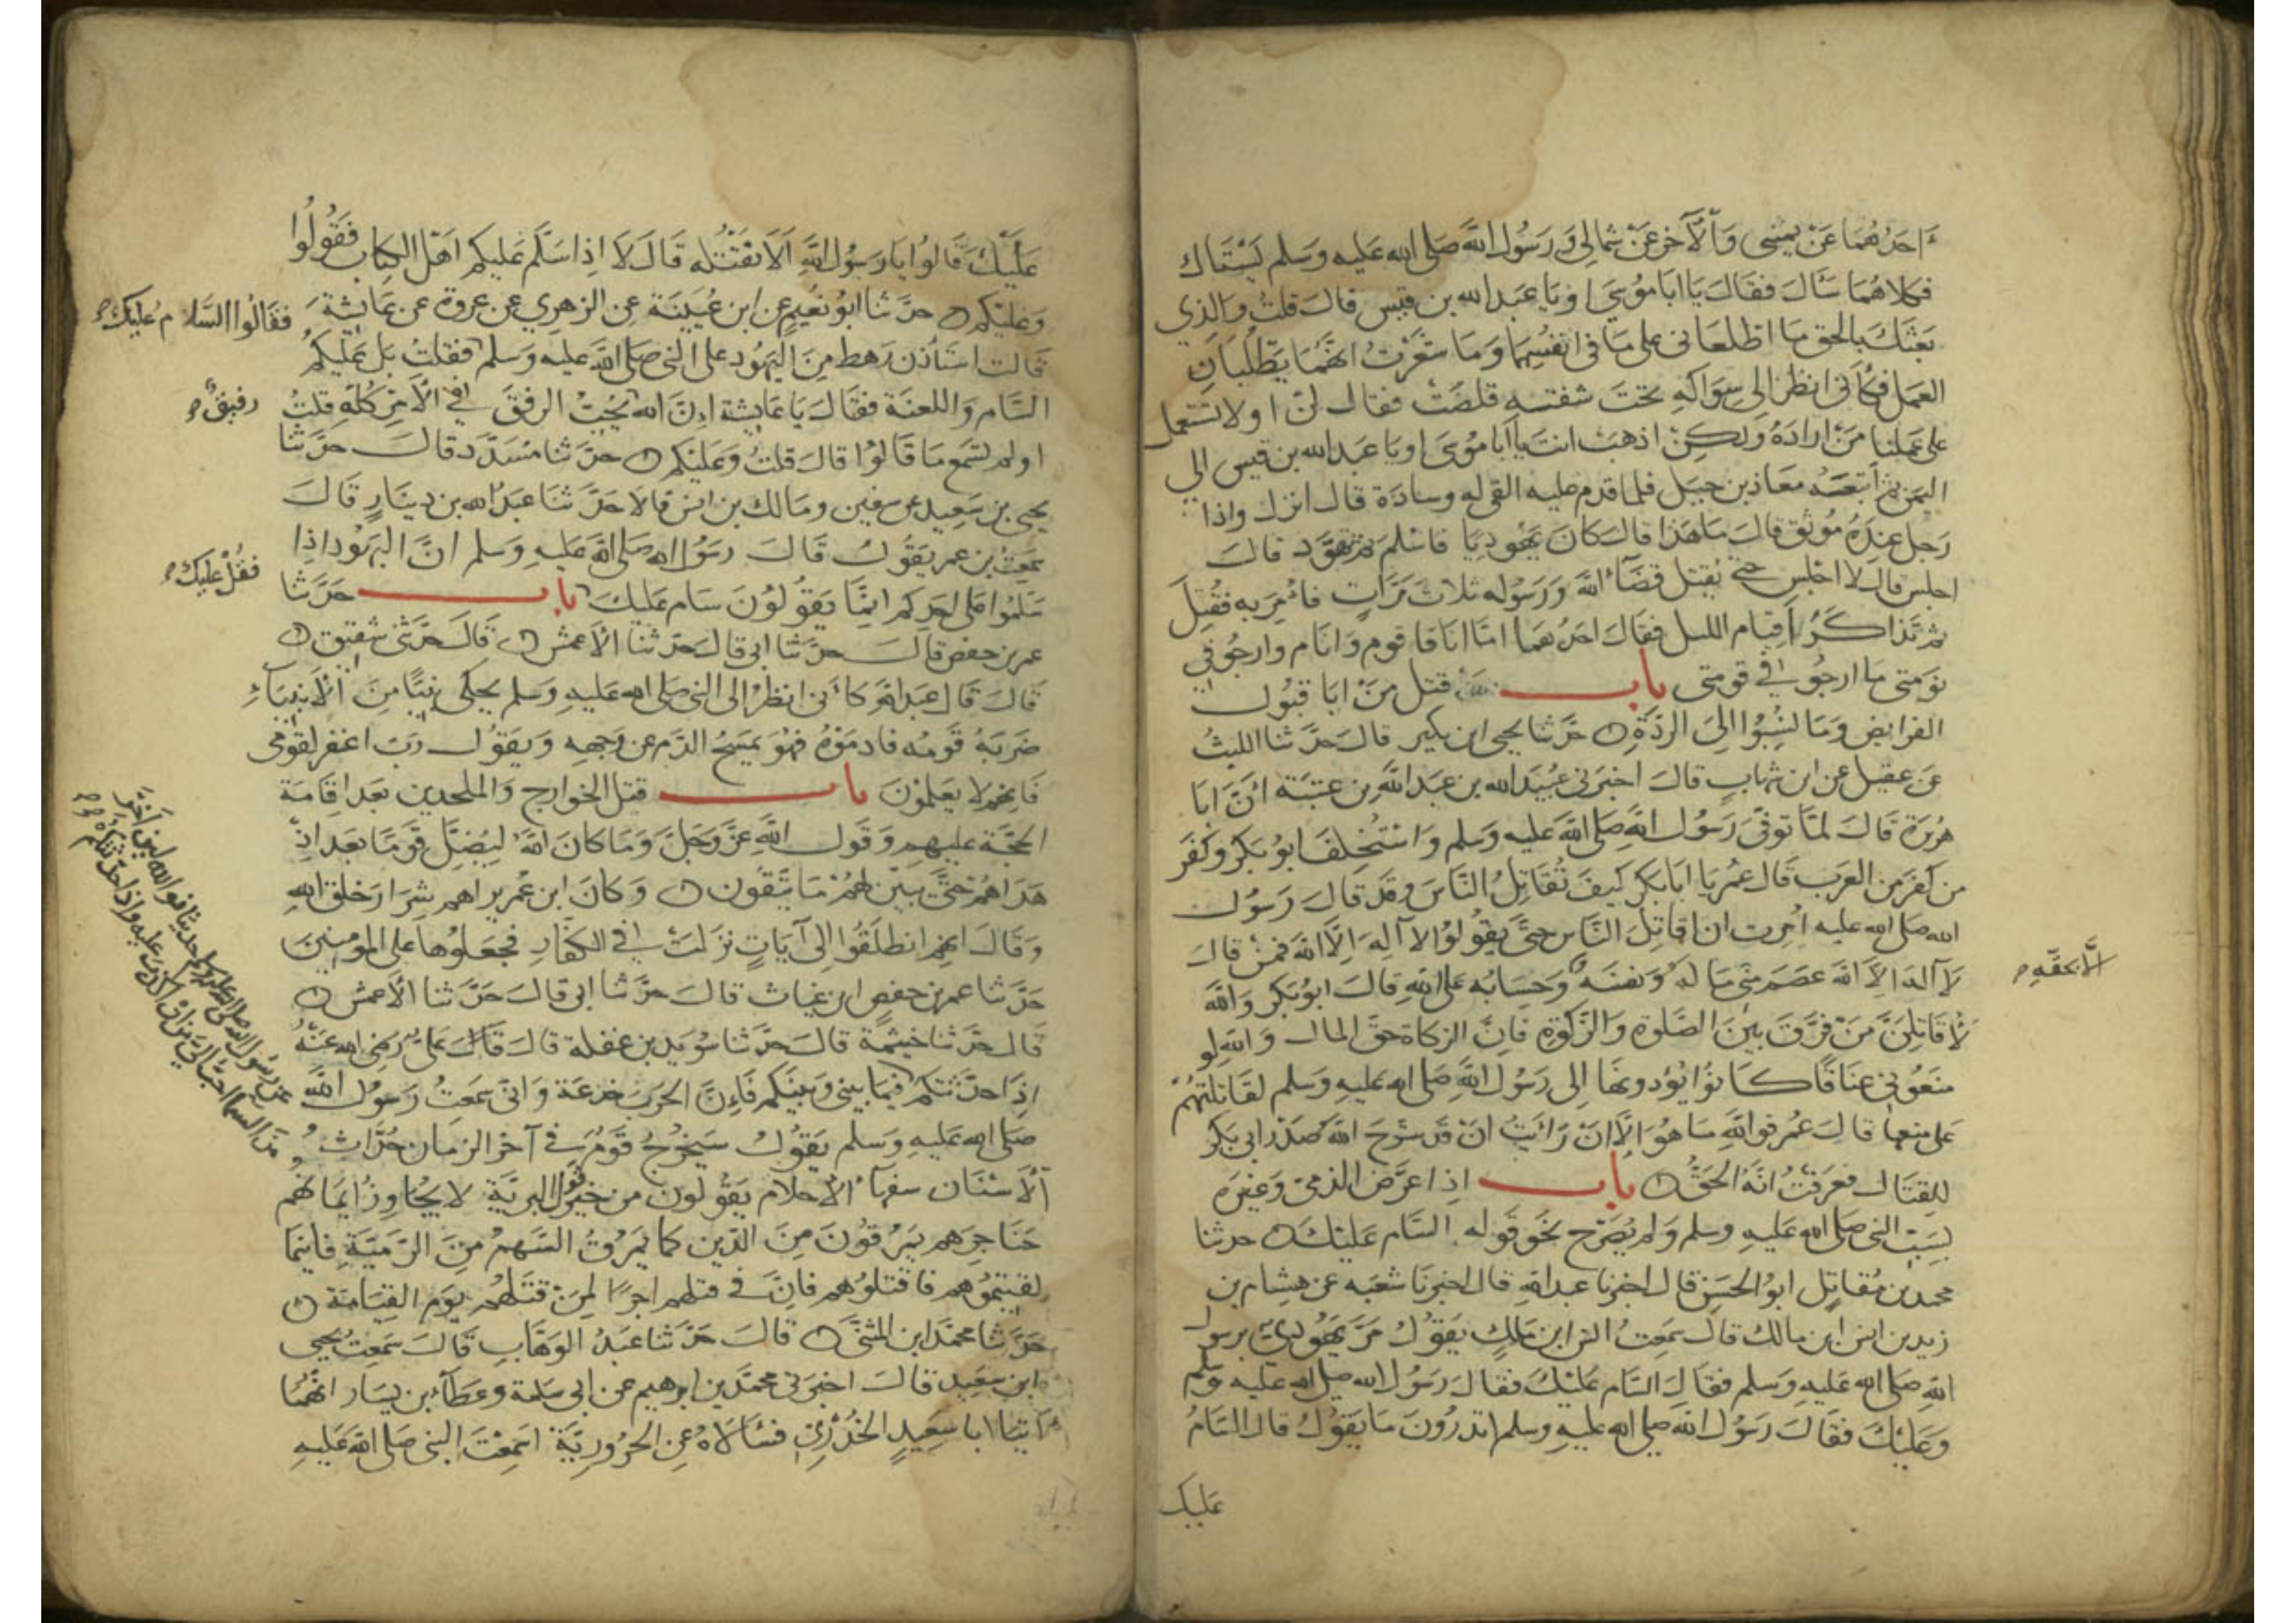 احدهما عن يميني والآخر عن شمالي ورسول الله صلى الله عليه وسلم يستاك
فكلاهما سأل فقال يا ابا موسى او يا عبد الله بن قيس قال قلت والذي
بعثك بالحق ما اطلعاني على ما في انفسهما وما شعرت انهما يطلبان
العمل فكأني انظر الى سواكه تحت شفته قلصت فقال لن او لا نستعمل
على عملنا من اراده ولكن اذهب انت يا ابا موسى او يا عبد الله بن قيس الى
اليمن ثم اتبعه معاذ بن جبل فلما قدم عليه القى له وسادة قال انزل واذا
رجل عنده موثق قال ما هذا قال كان يهوديا فاسلم ثم تهود قال
اجلس قال لا اجلس حتى يقتل قضاء الله ورسوله ثلاث مرات فأمر به فقتل
ثم تذاكرا قيام الليل فقال احدهما اما انا فاقوم وانام وارجو في
نومتي ما ارجو في قومتي باب قتل من ابا قبول
الفرايض وما نسبوا الى الردة حدثنا يحيى ابن بكير قال حدثنا الليث
عن عقيل عن ابن شهاب قال اخبرني عبيد الله بن عبد الله بن عتبة ان ابا
هريرة قال لما توفى رسول الله صلى الله عليه وسلم واستخلف ابو بكر وكفر
من كفر من العرب قال عمر يا ابا بكر كيف تقاتل الناس وقد قال رسول
الله صلى الله عليه امرت ان اقاتل الناس حتى يقولوا لا اله الا الله فمن قال
لا اله الا الله عصم مني ماله ونفسه وحسابه على الله قال ابو بكر والله
الا بحقه
لأقاتلن من فرق بين الصلوة والزكوة فان الزكاة حق المال والله لو
منعوني عناقا كانوا يؤدونها الى رسول الله صلى الله عليه وسلم لقاتلتهم
على منعها قال عمر فوالله ما هو الا ان رأيت ان قد شرح الله صدر ابي بكر
للقتال فعرفت انه الحق باب اذا عرض الذمي وغيره
بسب النبي صلى الله عليه وسلم ولم يصرح نحو قوله السام عليك حدثنا
محمد بن مقاتل ابو الحسن قال اخبرنا عبد الله قال اخبرنا شعبه عن هشام بن
زيد بن انس ابن مالك قال سمعت انس ابن مالك يقول مر يهودي برسول
الله صلى الله عليه وسلم فقال السام عليك فقال رسول الله صلى الله عليه وسلم
وعليك فقال رسول الله صلى الله عليه وسلم اتدرون ما يقول قال السام
عليك
عليك قالوا يا رسول الله الا نقتله قال لا اذا سلم عليكم اهل الكتاب فقولوا
وعليكم حدثنا ابو نعيم عن ابن عيينة عن الزهري عن عروة عن عايشة
فقالوا السلام عليك
قالت استأذن رهط من اليهود على النبي صلى الله عليه وسلم فقلت بل عليكم
السام واللعنة فقال يا عايشة ان الله يحب الرفق في الامر كله قلت
رفيق
اولم تسمع ما قالوا قال قلت وعليكم حدثنا مسدد قال حدثنا
يحيى بن سعيد عن سفين ومالك بن انس قالا حدثنا عبد الله بن دينار قال
سمعت بن عمر يقول قال رسول الله صلى الله عليه وسلم ان اليهود اذا
فقل عليك
سلموا على احدكم انما يقولون سام عليك باب حدثنا
عمر بن حفص قال حدثنا ابي قال حدثنا الأعمش قال حدثني شقيق
قال قال عبد الله كأني انظر الى النبي صلى الله عليه وسلم يحكى نبيا من الأنبياء
ضربه قومه فادموه فهو يمسح الدم عن وجهه ويقول رب اغفر لقومي
فانهم لا يعلمون باب قتل الخوارج والملحدين بعد اقامة
الحجة عليهم وقول الله عز وجل وما كان الله ليضل قوما بعد اذ
هداهم حتى يبين لهم ما يتقون وكان ابن عمر يراهم شرار خلق الله
وقال انهم انطلقوا الى آيات نزلت في الكفار فجعلوها على المومنين
حدثنا عمر بن حفص ابن غياث قال حدثنا ابي قال حدثنا الأعمش
قال حدثنا خيثمة قال حدثنا سويد بن غفلة قال قال علي رضي الله عنه
اذا حدثتكم فيما بيني وبينكم فإن الحرب خدعة واني سمعت رسول الله
عن رسول الله صلى الله عليه وسلم حديثا فوالله لين اخر
من السما احب الي من ان اكذب عليه واذا حدثتكم
صلى الله عليه وسلم يقول سيخرج قوم في آخر الزمان حداث
الأسنان سفهاء الأحلام يقولون من خير قول البرية لا يجاوز ايمانهم
حناجرهم يمرقون من الدين كما يمرق السهم من الرمية فاينما
لقيتموهم فاقتلوهم فان في قتلهم اجرا لمن قتلهم يوم القيامة
حدثنا محمد ابن المثنى قال حدثنا عبد الوهاب قال سمعت يحيى
ابن سعيد قال اخبرني محمد بن ابرهيم عن ابي سلمة وعطاء بن يسار انهما
اتيا ابا سعيد الخدري فسألاه عن الحرورية اسمعت النبي صلى الله عليه